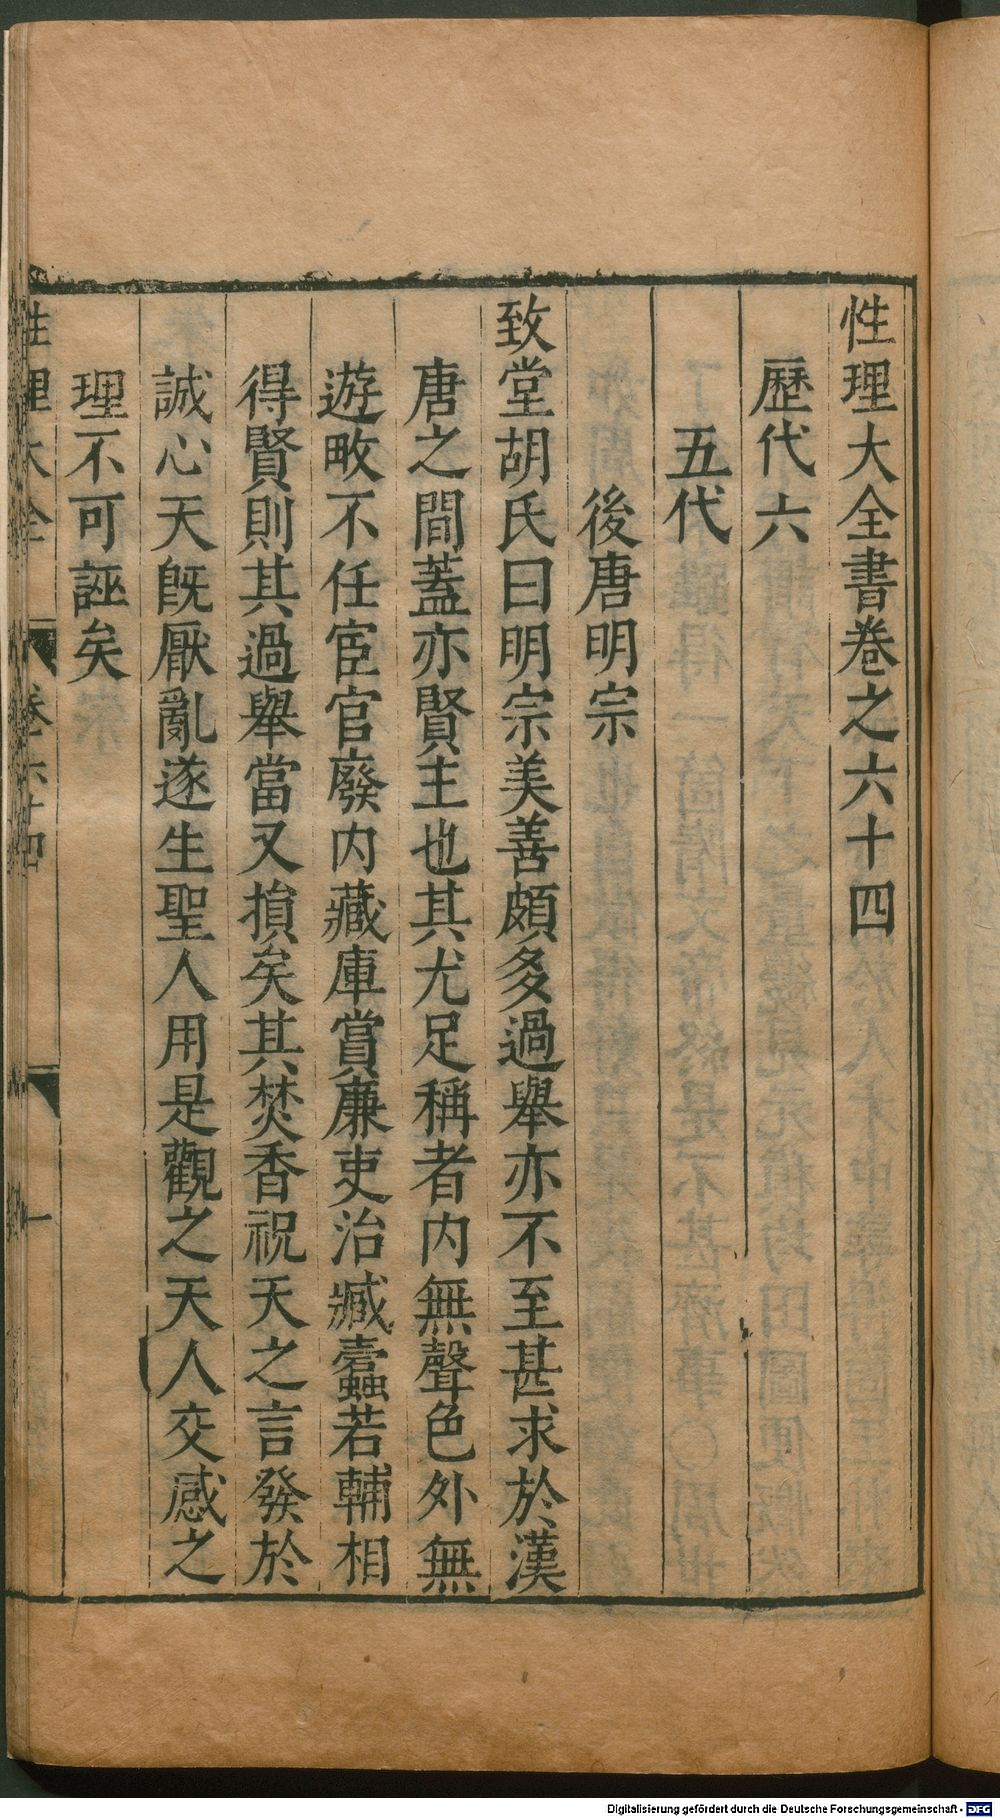 性理大全書卷之六十四
歷代六
五代
後唐明宗
致堂胡氏曰明宗美善頗多過舉亦不至甚求於漢
唐之間蓋亦賢主也其尤足稱者内無聲色外無
遊畋不任宦官廢内藏庫賞廉吏治贓蠹若輔相
得賢則其過舉當又損矣其焚香祝天之言發於
誠心天旣厭亂遂生聖人用是觀之天人交感之
理不可誣矣
性理大全 卷六十四 一
Digitalisierung gefördert durch die Deutsche Forschungsgemeinschaft - DFG